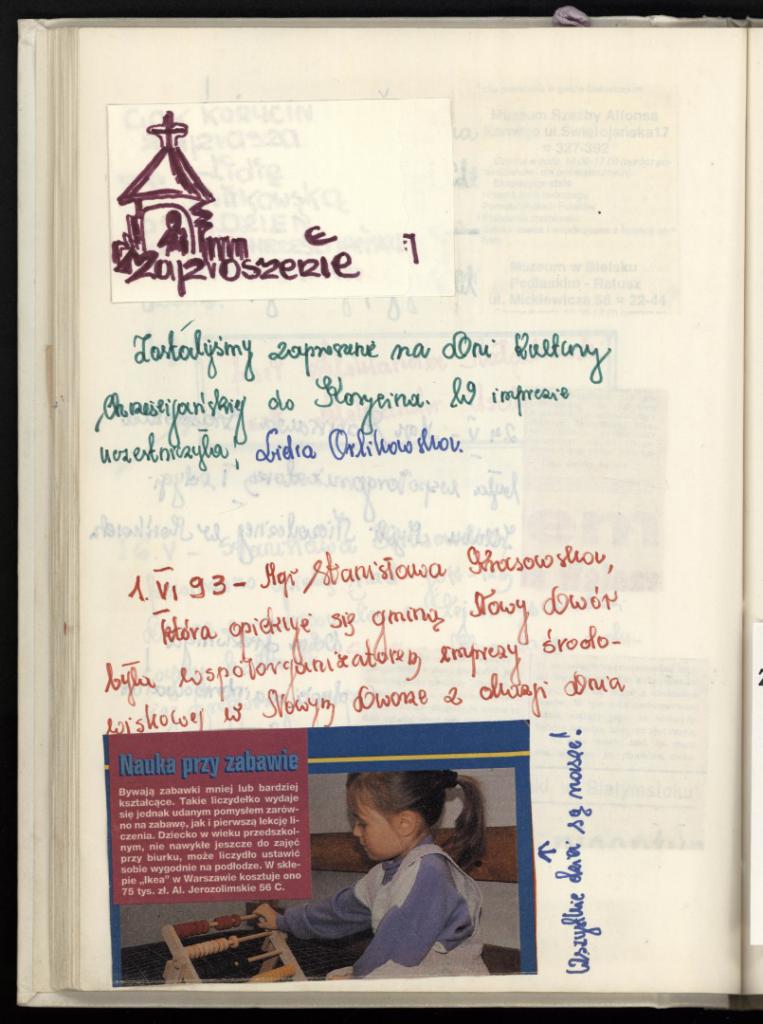 Zaproszenie
Zostałyśmy zaproszone na Dni Kultury
Chrześcijańskiej do Korycina. W imprezie
uczestniczyła, Lidia Orlikowska.
1. VI 93 - Mgr Stanisława Krasowska,
która opiekuje się gminą Nowy Dwór
była współorganizatorem imprezy środo-
wiskowej w Nowym Dworze z okazji Dnia
Nauka przy zabawie
Bywają zabawki mniej lub bardziej
kształcące. Takie liczydełko wydaje
się jednak udanym pomysłem zarów-
no na zabawę, jak i pierwszą lekcję li-
czenia. Dziecko w wieku przedszkol-
nym, nie nawykłe jeszcze do zajęć
przy biurku, może liczydło ustawić
sobie wygodnie na podłodze. W skle-
pie „Ikea” w Warszawie kosztuje ono
75 tys. zł. Al. Jerozolimskie 56 C.
Wszystkie dzieci są nasze!